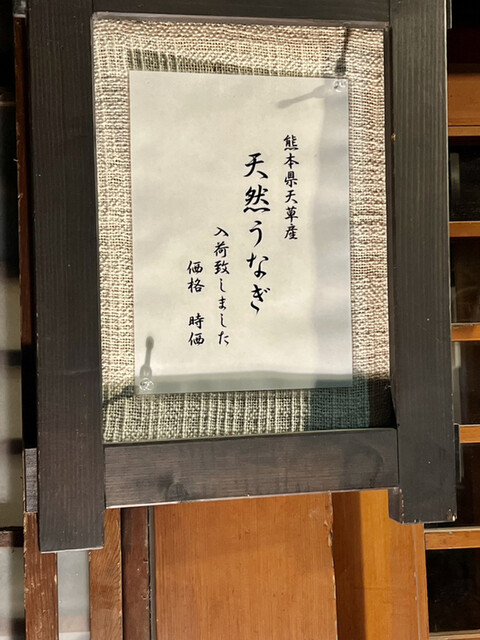 熊本県天草産
天然うなぎ
入荷致しました
価格　時価